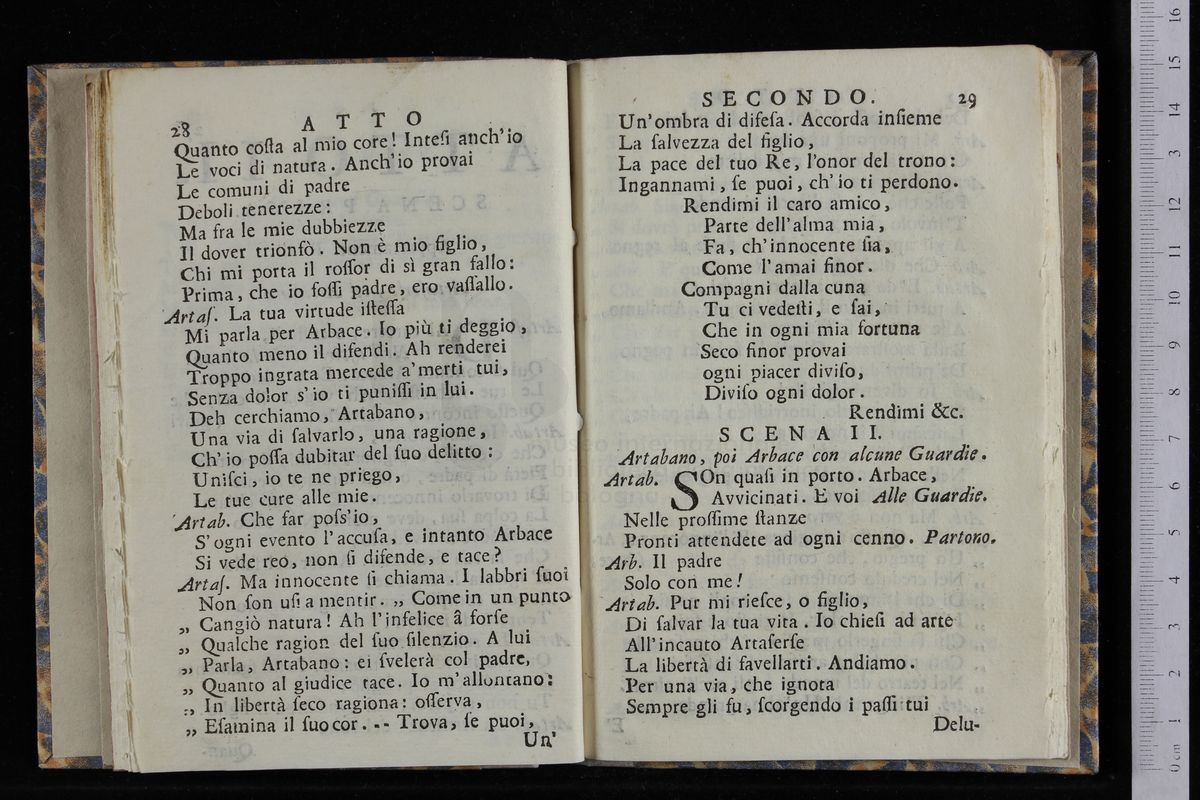 28
A T T O
Quanto coſta al mio core! Inteſi anch'io
Le voci di natura. Anch'io provai
Le comuni di padre
Deboli tenerezze:
Ma fra le mie dubbiezze
Il dover trionfò. Non è mio figlio,
Chi mi porta il roſſor di sì gran fallo:
Prima, che io foſſi padre, ero vaſſallo.
Artaſ. La tua virtude iſteſſa
Mi parla per Arbace. Io più ti deggio,
Quanto meno il difendi. Ah renderei
Troppo ingrata mercede a'merti tui,
Senza dolor s'io ti puniſſi in lui.
Deh cerchiamo, Artabano,
Una via di ſalvarlo, una ragione,
Ch'io poſſa dubitar del ſuo delitto:
Uniſci, io te ne priego,
Le tue cure alle mie.
Artab. Che far poſs'io,
S'ogni evento l'accuſa, e intanto Arbace
Si vede reo, non ſi difende, e tace?
Artaſ. Ma innocente ſi chiama. I labbri ſuoi
Non ſon uſi a mentir. „ Come in un punto
„ Cangiò natura! Ah l'infelice â forſe
„ Qualche ragion del ſuo ſilenzio. A lui
„ Parla, Artabano: ei ſvelerà col padre,
„ Quanto al giudice tace. Io m'allontano:
„ In libertà ſeco ragiona: oſſerva,
„ Eſamina il ſuo cor. -- Trova, ſe puoi,
Un'
SECONDO.
29
Un'ombra di difeſa. Accorda inſieme
La ſalvezza del figlio,
La pace del tuo Re, l'onor del trono:
Ingannami, ſe puoi, ch'io ti perdono.
Rendimi il caro amico,
Parte dell'alma mia,
Fa, ch'innocente ſia,
Come l'amai finor.
Compagni dalla cuna
Tu ci vedeſti, e ſai,
Che in ogni mia fortuna
Seco finor provai
ogni piacer diviſo,
Diviſo ogni dolor.
Rendimi &c.
SCENA II.
Artabano, poi Arbace con alcune Guardie.
Artab. SOn quaſi in porto. Arbace,
Avvicinati. E voi Alle Guardie.
Nelle proſſime ſtanze
Pronti attendete ad ogni cenno. Partono.
Arb. Il padre
Solo con me!
Artab. Pur mi rieſce, o figlio,
Di ſalvar la tua vita. Io chieſi ad arte
All'incauto Artaſerſe
La libertà di favellarti. Andiamo.
Per una via, che ignota
Sempre gli fu, ſcorgendo i paſſi tui
Delu-
0 cm 1 2 3 4 5 6 7 8 9 10 11 12 13 14 15 16